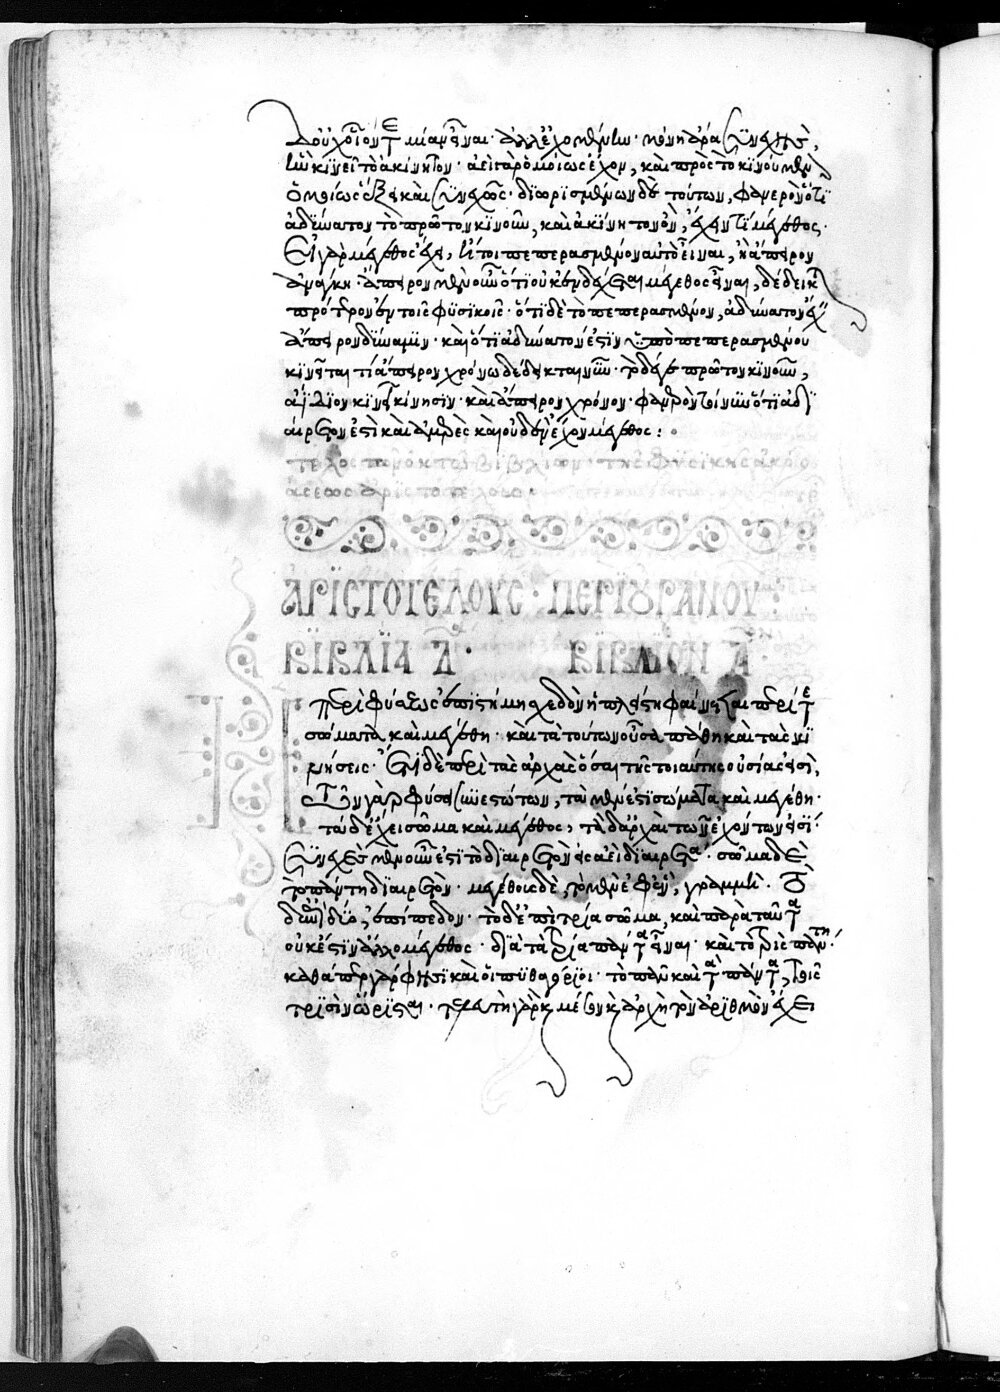 δ οὐχ οἷόν τε μίαν εἶναι· ἀλλ' ἐχομένην· μόνη ἄρα συνεχὴς,
ἣν κινεῖ τὸ ἀκίνητον· ἀεὶ γὰρ ὁμοίως ἔχον, καὶ πρὸς τὸ κινούμενον
ὁμοίως ἕξει καὶ συνεχῶς· διωρισμένων δὲ τούτων, φανερὸν ὅτι
ἀδύνατον τὸ πρῶτον κινοῦν, καὶ ἀκίνητον ὂν, ἔχειν τι μέγεθος·
Εἰ γὰρ μέγεθος ἔχει, ἤτοι πεπερασμένον αὐτὸ εἶναι, ἢ ἄπειρον
ἀνάγκη· ἄπειρον μὲν οὖν ὅτι οὐκ ἐνδέχεται μέγεθος εἶναι, δέδεικται
πρότερον ἐν τοῖς φυσικοῖς· ὅτι δὲ τὸ πεπερασμένον, ἀδύνατον ἔχειν
ἄπειρον δύναμιν· καὶ ὅτι ἀδύνατόν ἐστιν ὑπὸ πεπερασμένου
κινεῖσθαι τί ἄπειρον χρόνον δέδεικται νῦν· τὸ δέ γε πρῶτον κινοῦν,
ἀΐδιον κινεῖ κίνησιν· καὶ ἄπειρον χρόνον· φανερὸν τοίνυν ὅτι ἀδι
αίρετόν ἐστι καὶ ἀμερὲς καὶ οὐδὲν ἔχον μέγεθος:
τέλος τῶν ὀκτὼ βιβλίων τῆς φυσικῆς ἀκρο
άσεως ἀριστοτέλους
ἈΡΙΣΤΟΤΕΛΟΥΣ· ΠΕΡΙ ΟΥΡΑΝΟΥ:
ΒΙΒΛΙΑ Δ· ΒΙΒΛΙΟΝ Α·
Περὶ φύσεως ἐπιστήμη σχεδὸν ἡ πλείστη φαίνεται περί τε
σώματα καὶ μεγέθη· καὶ τὰ τούτων οὖσα πάθη καὶ τὰς κι
νήσεις· Ἔτι δὲ περὶ τὰς ἀρχὰς ὅσαι τῆς τοιαύτης οὐσίας εἰσὶ,
Τῶν γὰρ φύσει συνεστώτων, τὰ μέν ἐστι σώματα καὶ μεγέθη·
τὰ δ' ἔχει σῶμα καὶ μέγεθος, τὰ δ' ἀρχαὶ τῶν ἐχόντων εἰσί·
Συνεχὲς μὲν οὖν ἐστι τὸ διαιρετὸν εἰς ἀεὶ διαιρετά· σῶμα δὲ
τὸ πάντῃ διαιρετὸν· μεγέθους δὲ, τὸ μὲν ἐφ' ἓν, γραμμὴ· Τὸ
δ' ἐπὶ δύο, ἐπίπεδον· τὸ δ' ἐπὶ τρία σῶμα, καὶ παρὰ ταῦτα
οὐκ ἔστιν ἄλλο μέγεθος· διὰ τὸ τρία πάντα εἶναι· καὶ τὸ τρὶς πάντη·
καθάπερ γάρ φησι καὶ οἱ πυθαγόρειοι· τὸ πᾶν καὶ τὰ πάντα, τοῖς
τρισὶν ὥρισται· τελευτὴ γὰρ καὶ μέσον καὶ ἀρχὴ τὸν ἀριθμὸν ἔχει